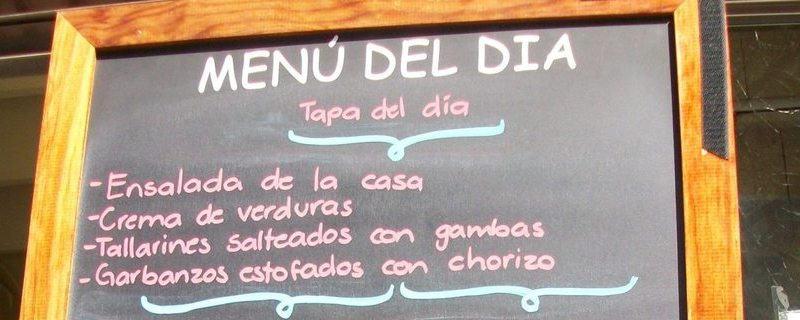 MENÚ DEL DIA
Tapa del día
-Ensalada de la casa
-Crema de verduras
-Tallarines salteados con gambas
-Garbanzos estofados con chorizo